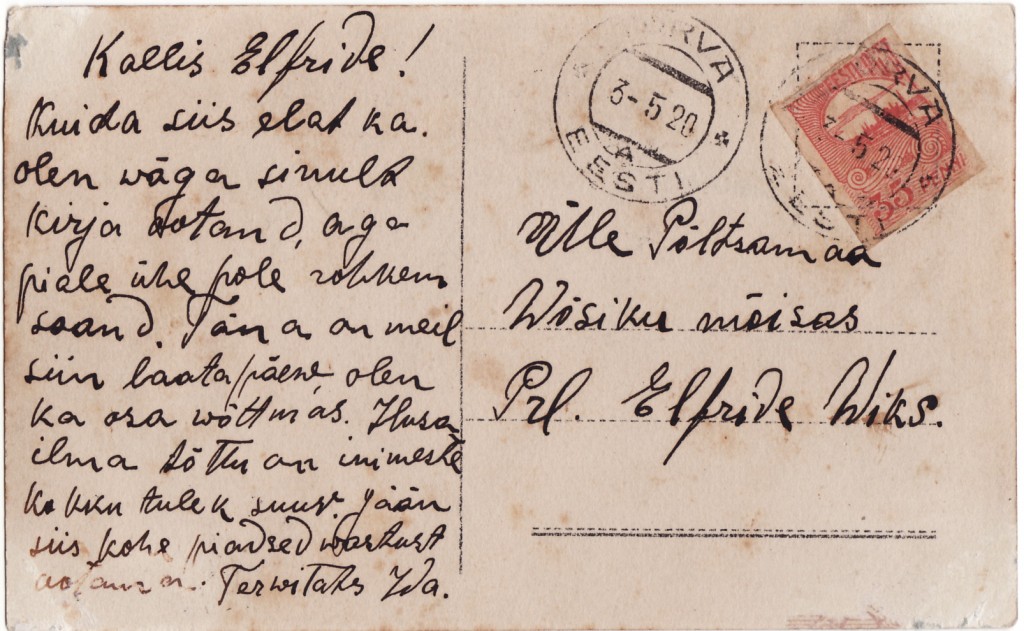 Kallis Elfride!
Kuida siis elat ka.
olen wäga sinult
kirja ootand, aga
piale ühe pole rohkem
saand. Täna on meil
siin laata päew, olen
ka osa wõttmas. Ilusa
ilma tõttu on inimeste
kokku tulek suur. Jään
siis kohe piadsed wastust
ootama. Terwitaks Ida.
3-5 20
A
EESTI
EESTI
35
Ülle Põltsamaa
Wõsiku mõisas
Prl. Elfride Wiks.